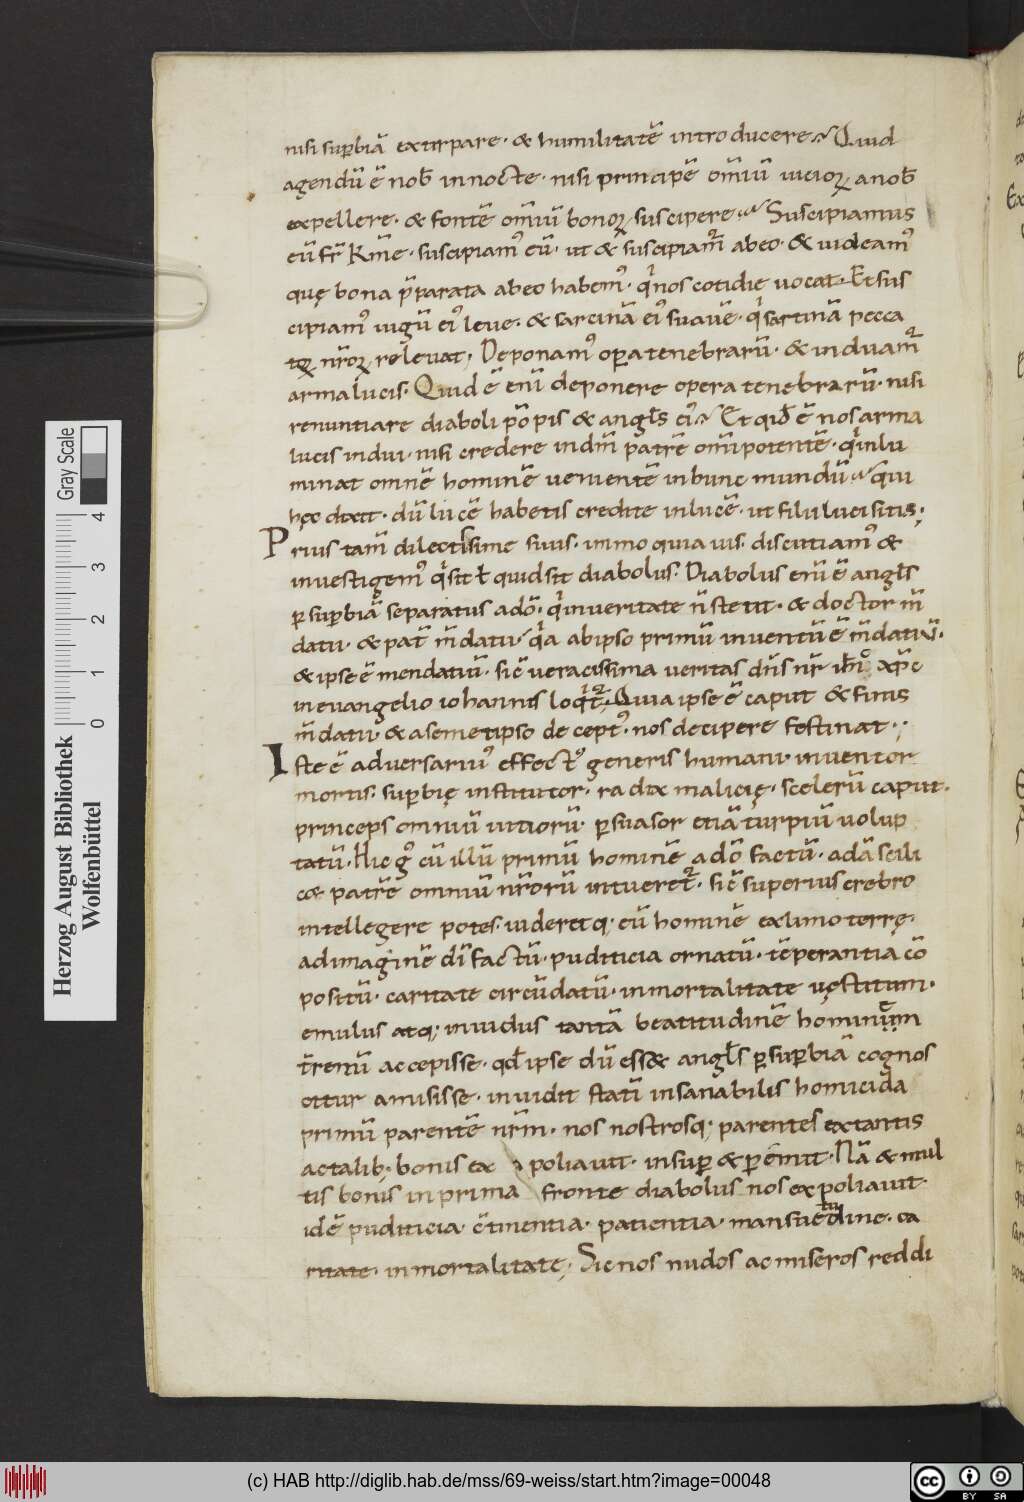 nisi sup̄biā extirpare · & humilitatē introducere · Quid
agendū ē nob̄ in nocte · nisi principē om̄iū uicioꝝ a nob̄
expellere · & fontē om̄iū bonoꝝ suscipere · Suscipiamus
eū fr̄ km̄e · suscipiam᾽ eū · ut & suscipiam̄ abeo · & uideam᾽
quę bona p̄parata abeo habem᾽ · q̇ nos cotidię uocat · Et sus
cipiam᾽ iugū ei᾽ leue · & sarcinā ei᾽ suauē · q̇ sarcinā pecca
toꝝ nr̄oꝝ releuat; Deponam᾽ opera tenebrarū · & induam̄
arma lucis · Quid ē eni̅ deponere opera tenebrarū · nisi
renuntiare diaboli pōpis & angl̄s ei᾽ · Et qid ē nos arma
lucis indui · nisi credere in dm̄ patrē om̄ipotentē · q̇ inlu
minat omnē hominē uenientē in hunc mundū · qui
hęc dixit · dū lucē habetis credite in lucē · ut filii luci sitis;
Prius tam̄ dilectissime suis · immo quia uis · discutiam᾽ &
inuestigem᾽ q̇ sit ł quid sit diabolus · Diabolus eni̅ ē angl̄s
ꝑ sup̄biā separatus a dō · q̇ in ueritate n̄ stetit · & doctor m̄
datii · & pat̄ m̄datii · q̇a ab ipso primū inuentū ē m̄datiū ·
& ipse ē mendatiū · sic̄ ueracissima ueritas dn̄s nr̄ ih̄s xp̄c
in euangelio iohannis loqit̄; Quia ipse ē caput & finis
m̄datii · & a semetipso decept᾽ · nos decipere festinat ·
Iste ē aduersariu᾽ effect᾽ generis humani · inuentor
mortis · sup̄bię institutor · radix malicię · scelerū caput ·
princeps omniū uitiorū · ꝑsuasor etiā turpiū uolup
tatū · Hic g᾽ cū illū primū hominē a dō factū · adā scili
cæ patrē omniū nr̄orū intueret̄ · sic̄ superius crebro
intellegere potes · uideretq; eū hominē ex limo terrę ·
ad imaginē dī factū · puditicia ornatū · tēperantia cō
positū · caritate circūdatū · inmortalitate uęstitum ·
emulus atq; inuidus tantā beatitudinē hominum
t̄renū accepisse · qd̄ ipse dū essæ angl̄s ꝑ sup̄biā cognos
citur amisisse · inuidit stati̅ insanabilis homicida
primū parentē nr̄m · nos nostrosq; parentes ex tantis
ac talib; bonis ex poliauit · insup̄ & ꝑemit · Nā & mul
tis bonis in prima fronte diabolus nos expoliauit
idē puditicia · c̄tinentia · patientia · mansuetudine · ca
ritate · inmortalitate; Sic nos nudos ac miseros reddi
Herzog August Bibliothek
Wolfenbüttel
0 1 2 3 4
Gray Scale
(c) HAB http://diglib.hab.de/mss/69-weiss/start.htm?image=00048
cc BY SA